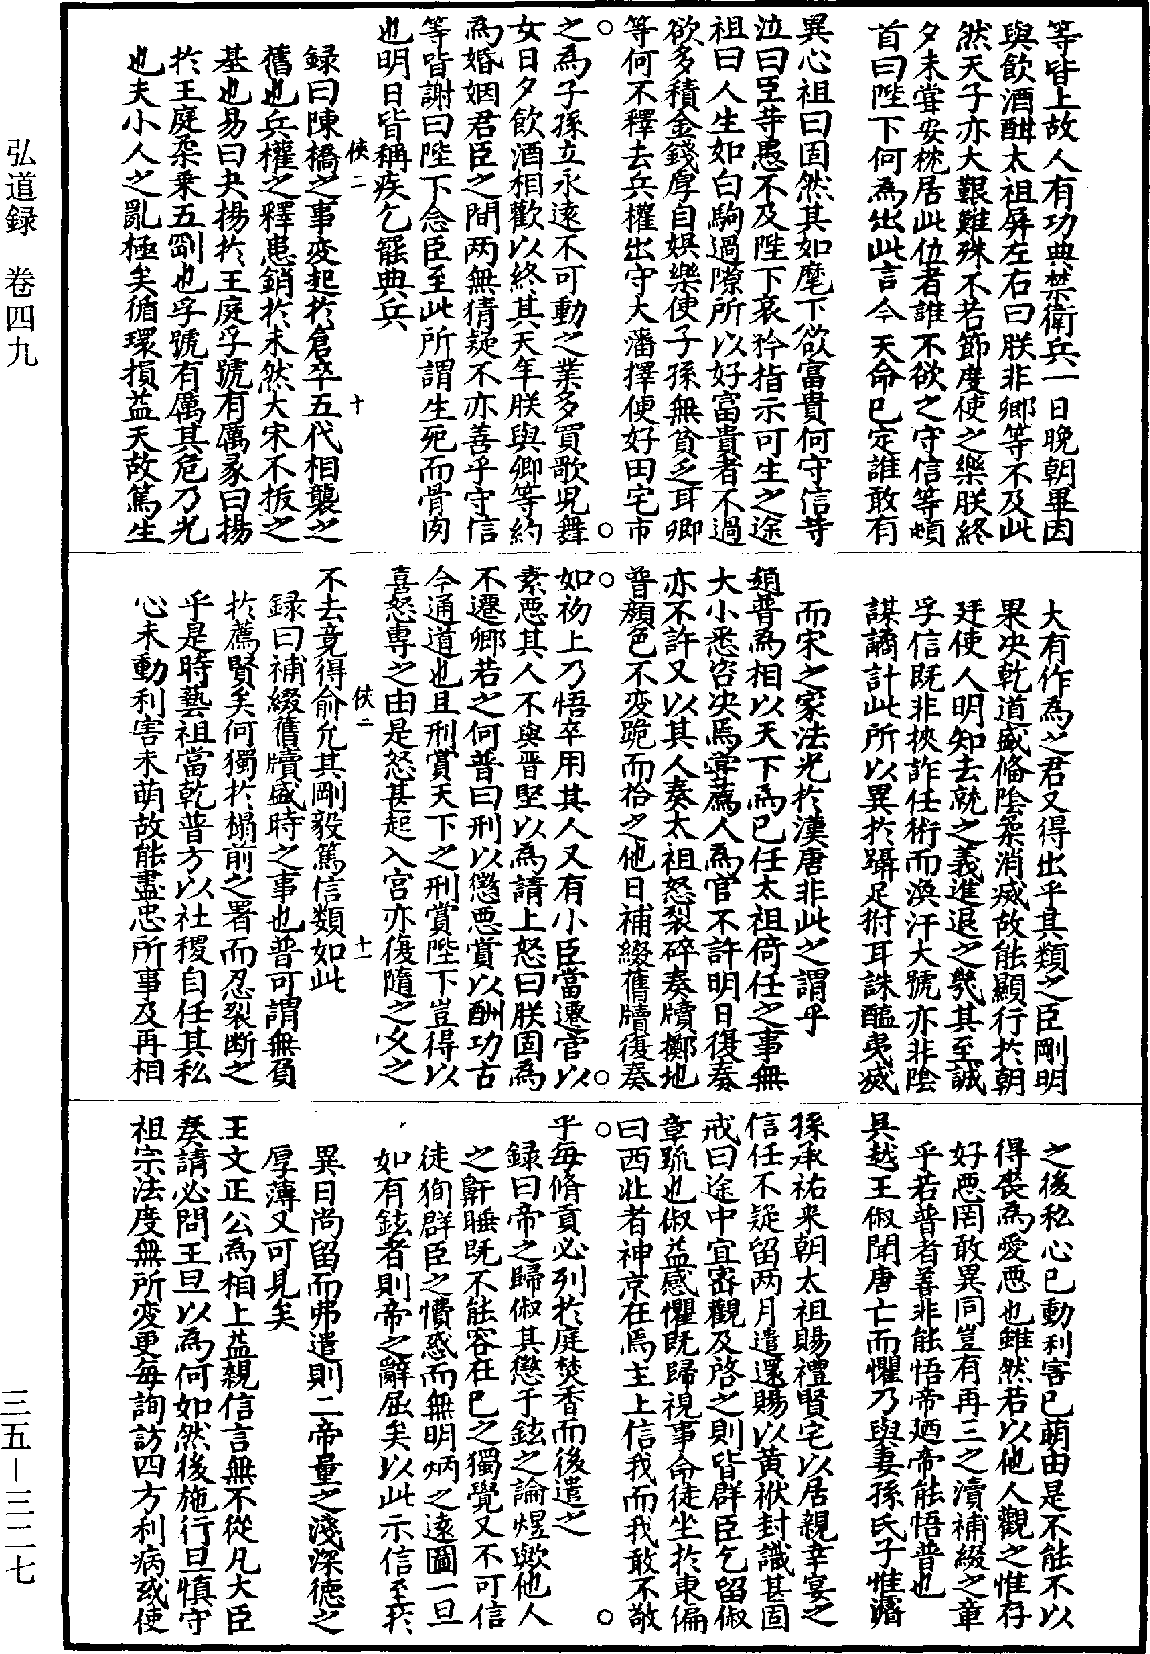 等皆上故人有功典禁衛兵一日晚朝畢因
與飲酒酣太祖屏左右曰朕非卿等不及此
然天子亦大艱難殊不若節度使之樂朕終
夕未嘗安枕居此位者誰不欲之守信等頓
首曰陛下何為出此言今天命已定誰敢有
異心祖曰固然其如麾下欲富貴何守信等
泣曰臣等愚不及陛下哀矜指示可生之途
祖曰人生如白駒過隙所以好富貴者不過
欲多積金錢厚自娛樂使子孫無貧乏耳卿
等何不釋去兵權出守大藩擇便好田宅市
之為子孫立永遠不可動之業多買歌兒舞
女日夕飲酒相歡以終其天年朕與卿等約
為婚姻君臣之間两無猜疑不亦善乎守信
等皆謝曰陛下念臣至此所謂生死而骨肉
也明日皆稱疾乞罷典兵
錄曰陳橋之事変起於倉卒五代相襲之
舊也兵權之釋患銷於未然大宋不拔之
基也易曰夬揚於王庭孚號有厲彖曰揚
於王庭柔乗五剛也孚號有厲其危乃光
也夫小人之亂極矣循環損益天故篤生
俠二
十
大有作為之君又得出乎其類之臣剛明
果决乾道盛脩陰柔消滅故能顯行於朝
廷使人明知去就之義進退之幾其至誠
孚信既非挾詐任術而渙汗大號亦非陰
謀譎計此所以異於躡足附耳誅醢夷滅
而宋之家法光於漢唐非此之謂乎
趙普為相以天下為已任太祖倚任之事無
大小悉咨决焉嘗薦人為官不許明日復奏
亦不許又以其人奏太祖怒裂碎奏牘擲地
普顏色不変跪而拾之他日補綴舊牘復奏
如初上乃悟卒用其人又有小臣當遷官以
素惡其人不與普堅以為請上怒曰朕固為
不遷卿若之何普曰刑以懲惡賞以酬功古
今通道也且刑賞天下之刑賞陛下豈得以
喜怒專之由是怒甚起入宮亦復隨之又之
不去竟得俞允其剛毅篤信類如此
錄曰補綴舊牘盛時之事也普可謂無負
於薦賢矣何獨於榻前之署而忍裂断之
乎是時藝祖當乾普方以社稷自任其私
心未動利害未萌故能盡忠所事及再相
俠二
十一
之後私心已動利害已萌由是不能不以
得喪為愛惡也雖然若以他人觀之惟存
好惡罔敢異同豈有再三之瀆補綴之章
乎若普者善非能悟帝廼帝能悟普也
吳越王俶聞唐亡而懼乃與妻孫氏子惟濬
孫承祐来朝太祖賜禮賢宅以居親幸宴之
信任不疑留两月遣還賜以黄袱封識甚固
戒曰途中宜宻觀及啓之則皆群臣乞留俶
章疏也俶益感懼既歸視事命徒坐於東偏
曰西北者神京在焉主上信我而我敢不敬
乎每脩貢必列於庭焚香而後遣之
錄曰帝之歸俶其懲于鉉之論煜歟他人
之鼾睡既不能容在已之獨覺又不可信
徒狥群臣之憤惑而無明炳之遠圖一旦
如有鉉者則帝之辭屈矣以此示信至於
異日尚留而弗遣則二帝量之淺深徳之
厚薄又可見矣
王文正公為相上益親信言無不從凡大臣
奏請必問王旦以為何如然後施行旦慎守
祖宗法度無所変更每詢訪四方利病或使
弘道録　卷四九
三五－三二七